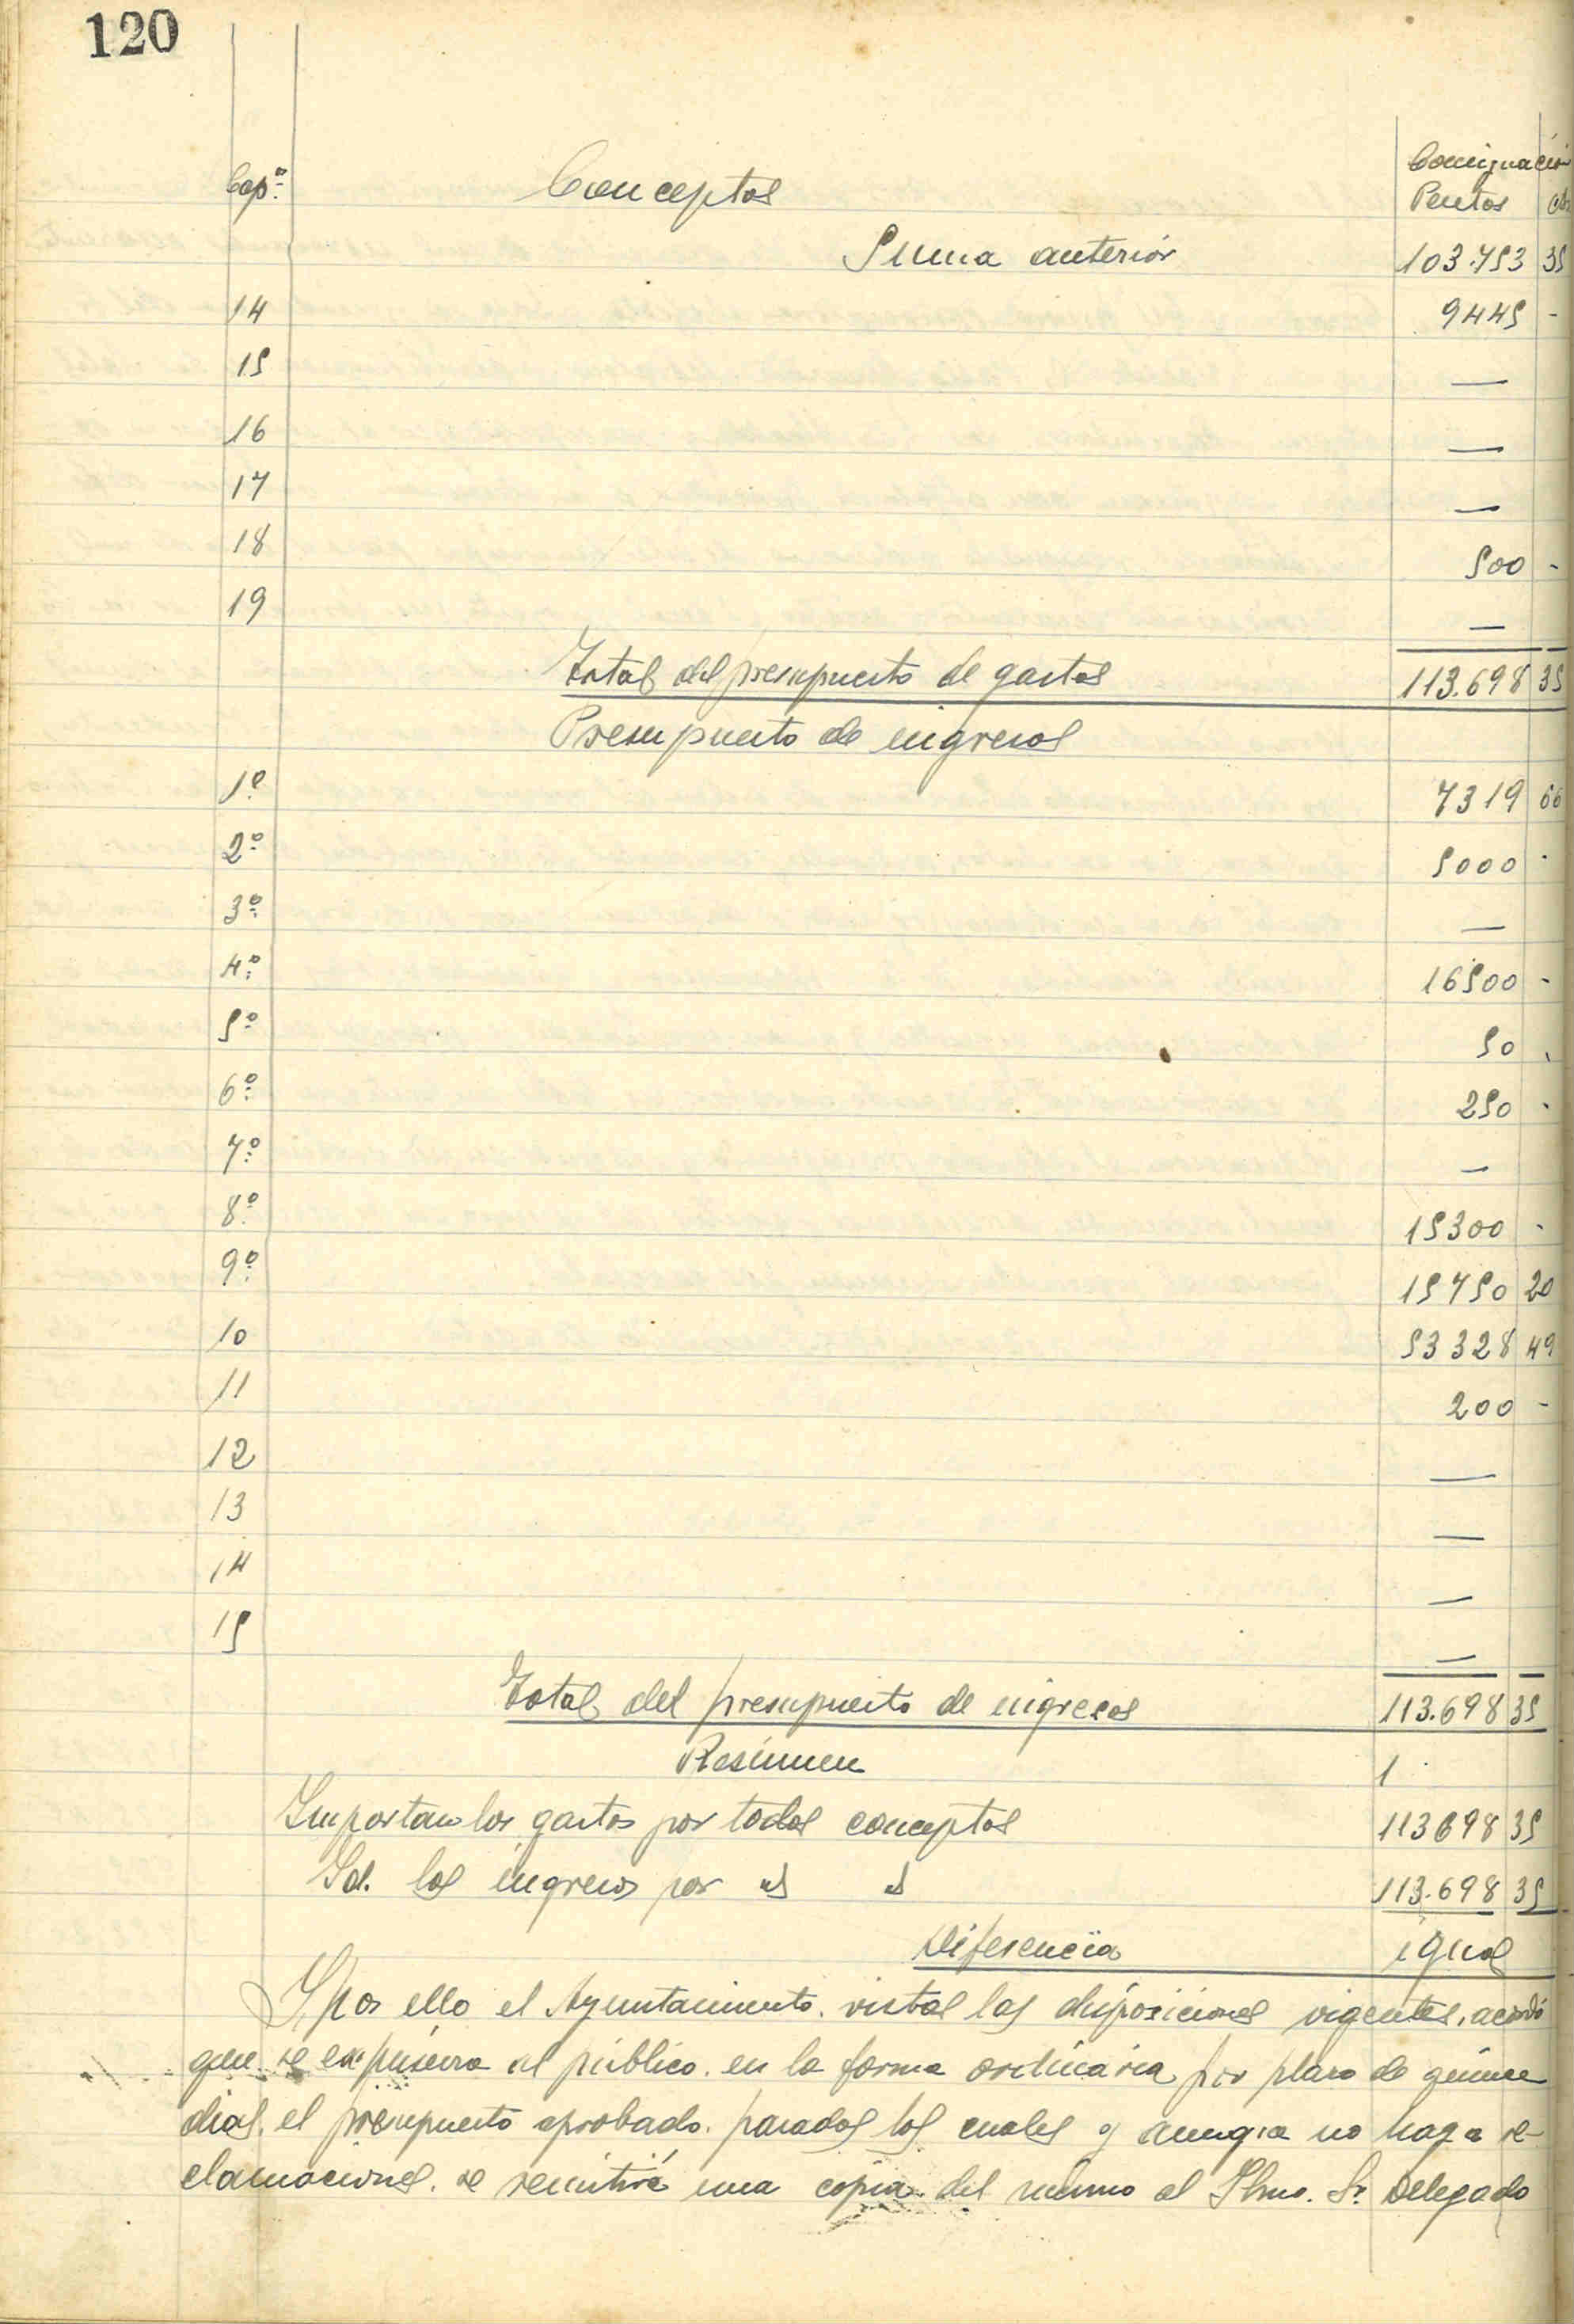 120
Capº Conceptos Consignación
Pesetas cts
Suma anterior 103.753 35
14 9445 -
15 —
16 —
17 —
18 500 -
19 —
Total del presupuesto de gastos 113.698 35
Presupuesto de ingresos
1º 7319 66
2º 5000 -
3º —
4º 16500 -
5º 50 -
6º 250 -
7º —
8º 15300 -
9º 15750 20
10 53328 49
11 200 -
12 —
13 —
14 —
15 —
Total del presupuesto de ingresos 113.698 35
Resúmen 1
Importan los gastos por todos conceptos 113698 35
Id. los ingresos por " " 113.698 35
Diferencia igual
Y por ello el Ayuntamiento. vistas las disposiciones vigentes, acordó
que se expusiera al público. en la forma ordinaria por plazo de quince
dias, el presupuesto aprobado. pasados los cuales y aunque no haya re-
clamaciones. se remitirá una copia del mismo al Ilmo. Sr. Delegado